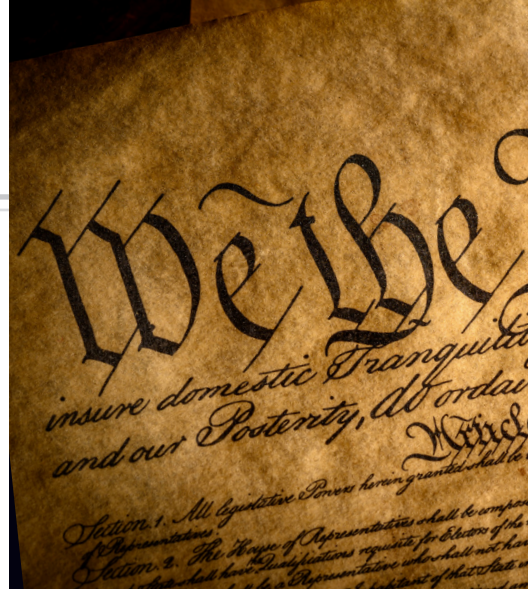 We the
insure domestic Tranquili
and our Posterity, do ordai
Article
Section. 1. All legislative Powers herein granted shall be
of Representatives
Section. 2. The House of Representatives shall be compo
State shall have Qualifications requisite for Electors of the
shall be a Representative who shall not hav
of that State in